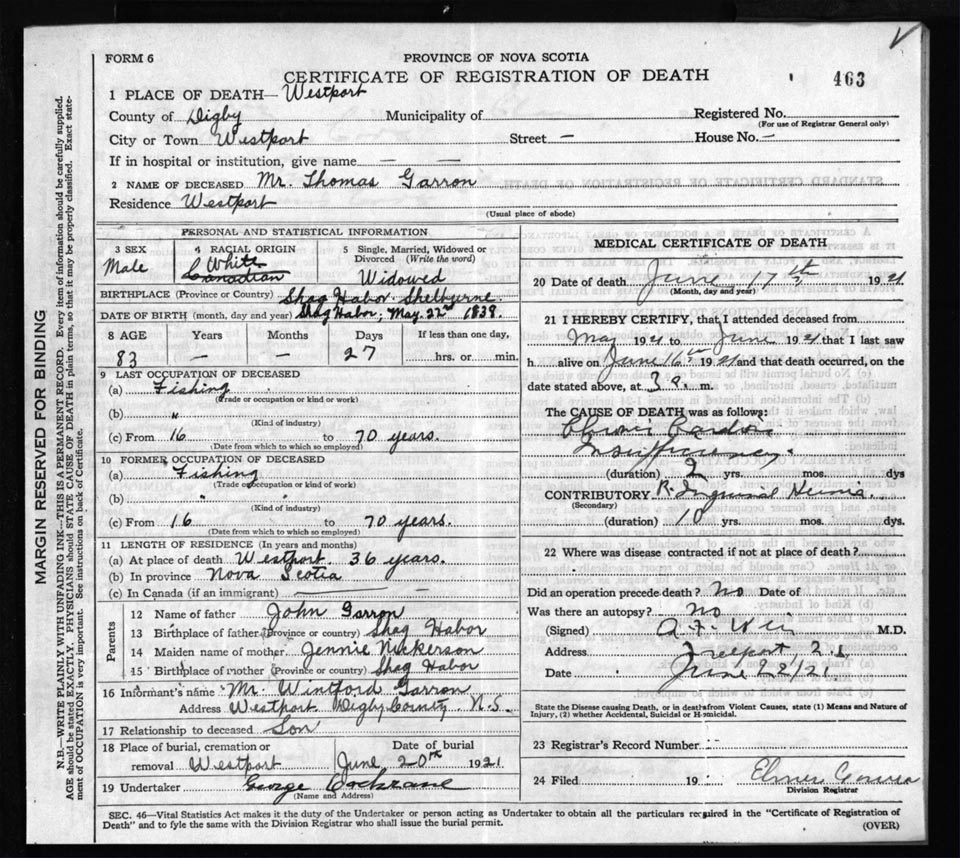 FORM 6
PROVINCE OF NOVA SCOTIA
CERTIFICATE OF REGISTRATION OF DEATH
463
1 PLACE OF DEATH— Westport
County of Digby Municipality of Registered No.
(For use of Registrar General only)
City or Town Westport Street — House No. —
If in hospital or institution, give name — —
2 NAME OF DECEASED Mr. Thomas Garron
Residence Westport
(Usual place of abode)
PERSONAL AND STATISTICAL INFORMATION
3 SEX
Male
4 RACIAL ORIGIN
White
Canadian
5 Single, Married, Widowed or
Divorced (Write the word)
Widowed
BIRTHPLACE (Province or Country) Shag Habor Shelburne
DATE OF BIRTH (month, day and year) Shag Habor; May. 22nd 1838.
8 AGE Years Months Days If less than one day,
83 — — 27 hrs. or min.
9 LAST OCCUPATION OF DECEASED
(a) Fishing
(Trade or occupation or kind or work)
(b) "
(Kind of industry)
(c) From 16 to 70 years.
(Date from which to which so employed)
10 FORMER OCCUPATION OF DECEASED
(a) Fishing
(Trade or occupation or kind of work)
(b) "
(Kind of industry)
(c) From 16 to 70 years.
(Date from which to which so employed)
11 LENGTH OF RESIDENCE (In years and months)
(a) At place of death Westport 36 years.
(b) In province Nova Scotia
(c) In Canada (if an immigrant)
Parents
12 Name of father John Garron
13 Birthplace of father (Province or country) Shag Habor
14 Maiden name of mother Jennie Nickerson
15 Birthplace of mother (Province or country) Shag Habor
16 Informant's name Mr. Wintford Garron
Address Westport Digby County N.S.
17 Relationship to deceased Son
18 Place of burial, cremation or Date of burial
removal Westport June 20th 1921
19 Undertaker George Cochrane
(Name and Address)
MEDICAL CERTIFICATE OF DEATH
20 Date of death June 17th 1921
(Month, day and year)
21 I HEREBY CERTIFY, that I attended deceased from
May 1921 to June 1921 that I last saw
h alive on June 16th 1921 and that death occurred, on the
date stated above, at 3 a. m.
The CAUSE OF DEATH was as follows:
Chronic Cardiac
Insufficiency.
(duration) 2 yrs. mos. dys
CONTRIBUTORY R. Inguinal Hernia.
(Secondary)
(duration) 10 yrs. mos. dys.
22 Where was disease contracted if not at place of death?
Did an operation precede death? No Date of
Was there an autopsy? No
(Signed) A. F. Weir M.D.
Address Freeport, N.S.
Date June 22/21
State the Disease causing Death, or in deaths from Violent Causes, state (1) Means and Nature of
Injury, (2) whether Accidental, Suicidal or Homicidal.
23 Registrar's Record Number
24 Filed 19 Elmer
Division Registrar
SEC. 46—Vital Statistics Act makes it the duty of the Undertaker or person acting as Undertaker to obtain all the particulars required in the "Certificate of Registration of
Death" and to fyle the same with the Division Registrar who shall issue the burial permit.
(OVER)
MARGIN RESERVED FOR BINDING
N.B.—WRITE PLAINLY WITH UNFADING INK—THIS IS A PERMANENT RECORD. Every item of information should be carefully supplied.
AGE should be stated EXACTLY. PHYSICIANS should STATE CAUSE OF DEATH in plain terms, so that it may be properly classified. Exact state-
ment of OCCUPATION is very important. See instructions on back of Certificate.